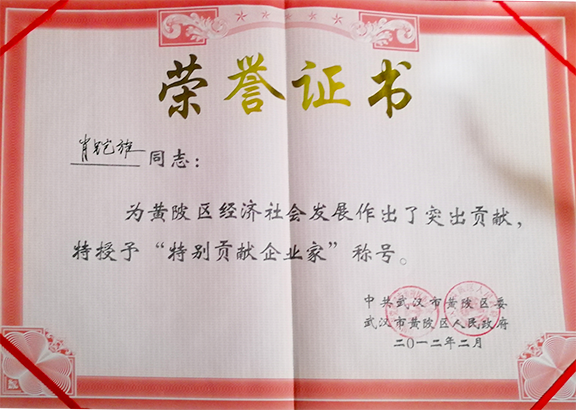 荣誉证书
肖凯雄 同志：
为黄陂区经济社会发展作出了突出贡献，
特授予“特别贡献企业家”称号。
中共武汉市黄陂区委
武汉市黄陂区人民政府
二〇一二年二月